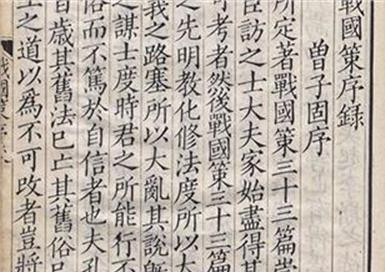 戰國策序録
曾子固序
所定著戰國策三十三篇崇
臣訪之士大夫家始盡得其
可考者然後戰國策三十三篇
之先明教化修法度所以大
義之路塞所以大亂其說既
之謀士度時君之所能行不
俗而不篤於自信者也夫孔
百歲其舊法已亡其舊俗已
王之道以為不可改者豈將
戰國策序